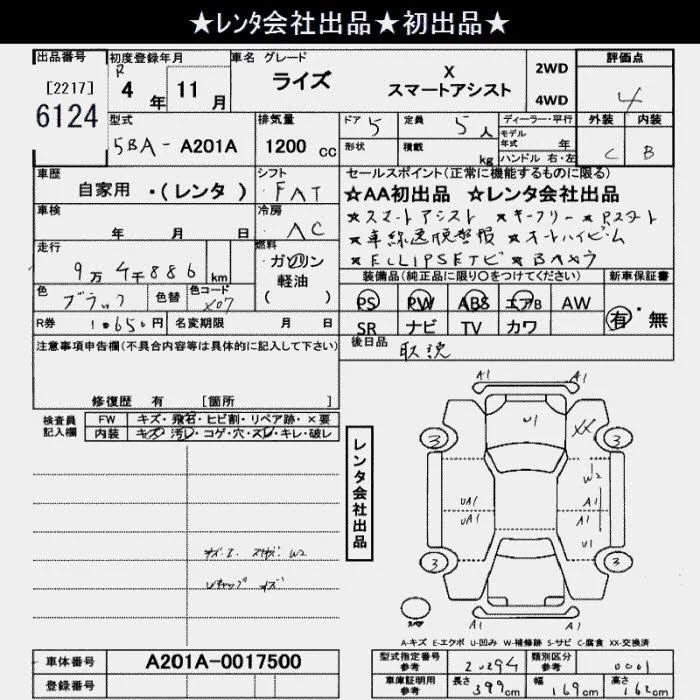 ★レンタ会社出品★初出品★
出品番号
[2217]
6124
初度登録年月
R 4年 11月
車名 グレード
ライズ X スマートアシスト
2WD
4WD
評価点
4
型式
5BA-A201A
排気量
1200cc
ドア 5
定員 5人
形状
積載 kg
ディーラー・平行
モデル年式 年
ハンドル 右・左
外装 内装
C B
車歴
自家用 ・(レンタ )
シフト
FAT
セールスポイント(正常に機能するものに限る)
☆AA初出品 ☆レンタ会社出品
★スマートアシスト ★キーフリー ★Pスタート
★車線逸脱警報 ★オートハイビーム
★ECLIPSEナビ ★BAXカ
車検
年 月 日
冷房
AC
走行
9万4千886km
燃料
ガソリン
軽油
( )
装備品(純正品に限り〇をつけてください)
新車保証書
PS PW ABS エアB AW
SR ナビ TV カワ
有・無
色
ブラック
色替
色コード
X07
R券
10650円
名変期限 月 日
後日品
取説
注意事項申告欄(不具合内容等は具体的に記入して下さい)
修復歴 有 [箇所 ]
検査員記入欄
FW キズ・飛石・ヒビ割・リペア跡・×要
内装 キズ・汚レ・コゲ・穴・スレ・キレ・破レ
レンタ会社出品
A1
A1
U1
XX
3
3
W2
UA1
A1
UA1
A1
U1
3
3
A1
A1
A-キズ E-エクボ U-凹み W-補修跡 S-サビ C-腐食 XX-交換済
車体番号
A201A-0017500
登録番号
型式指定番号
参考
20294
類別区分
参考
0001
車庫証明用
参考
長さ 399cm
幅 169cm
高さ 162cm